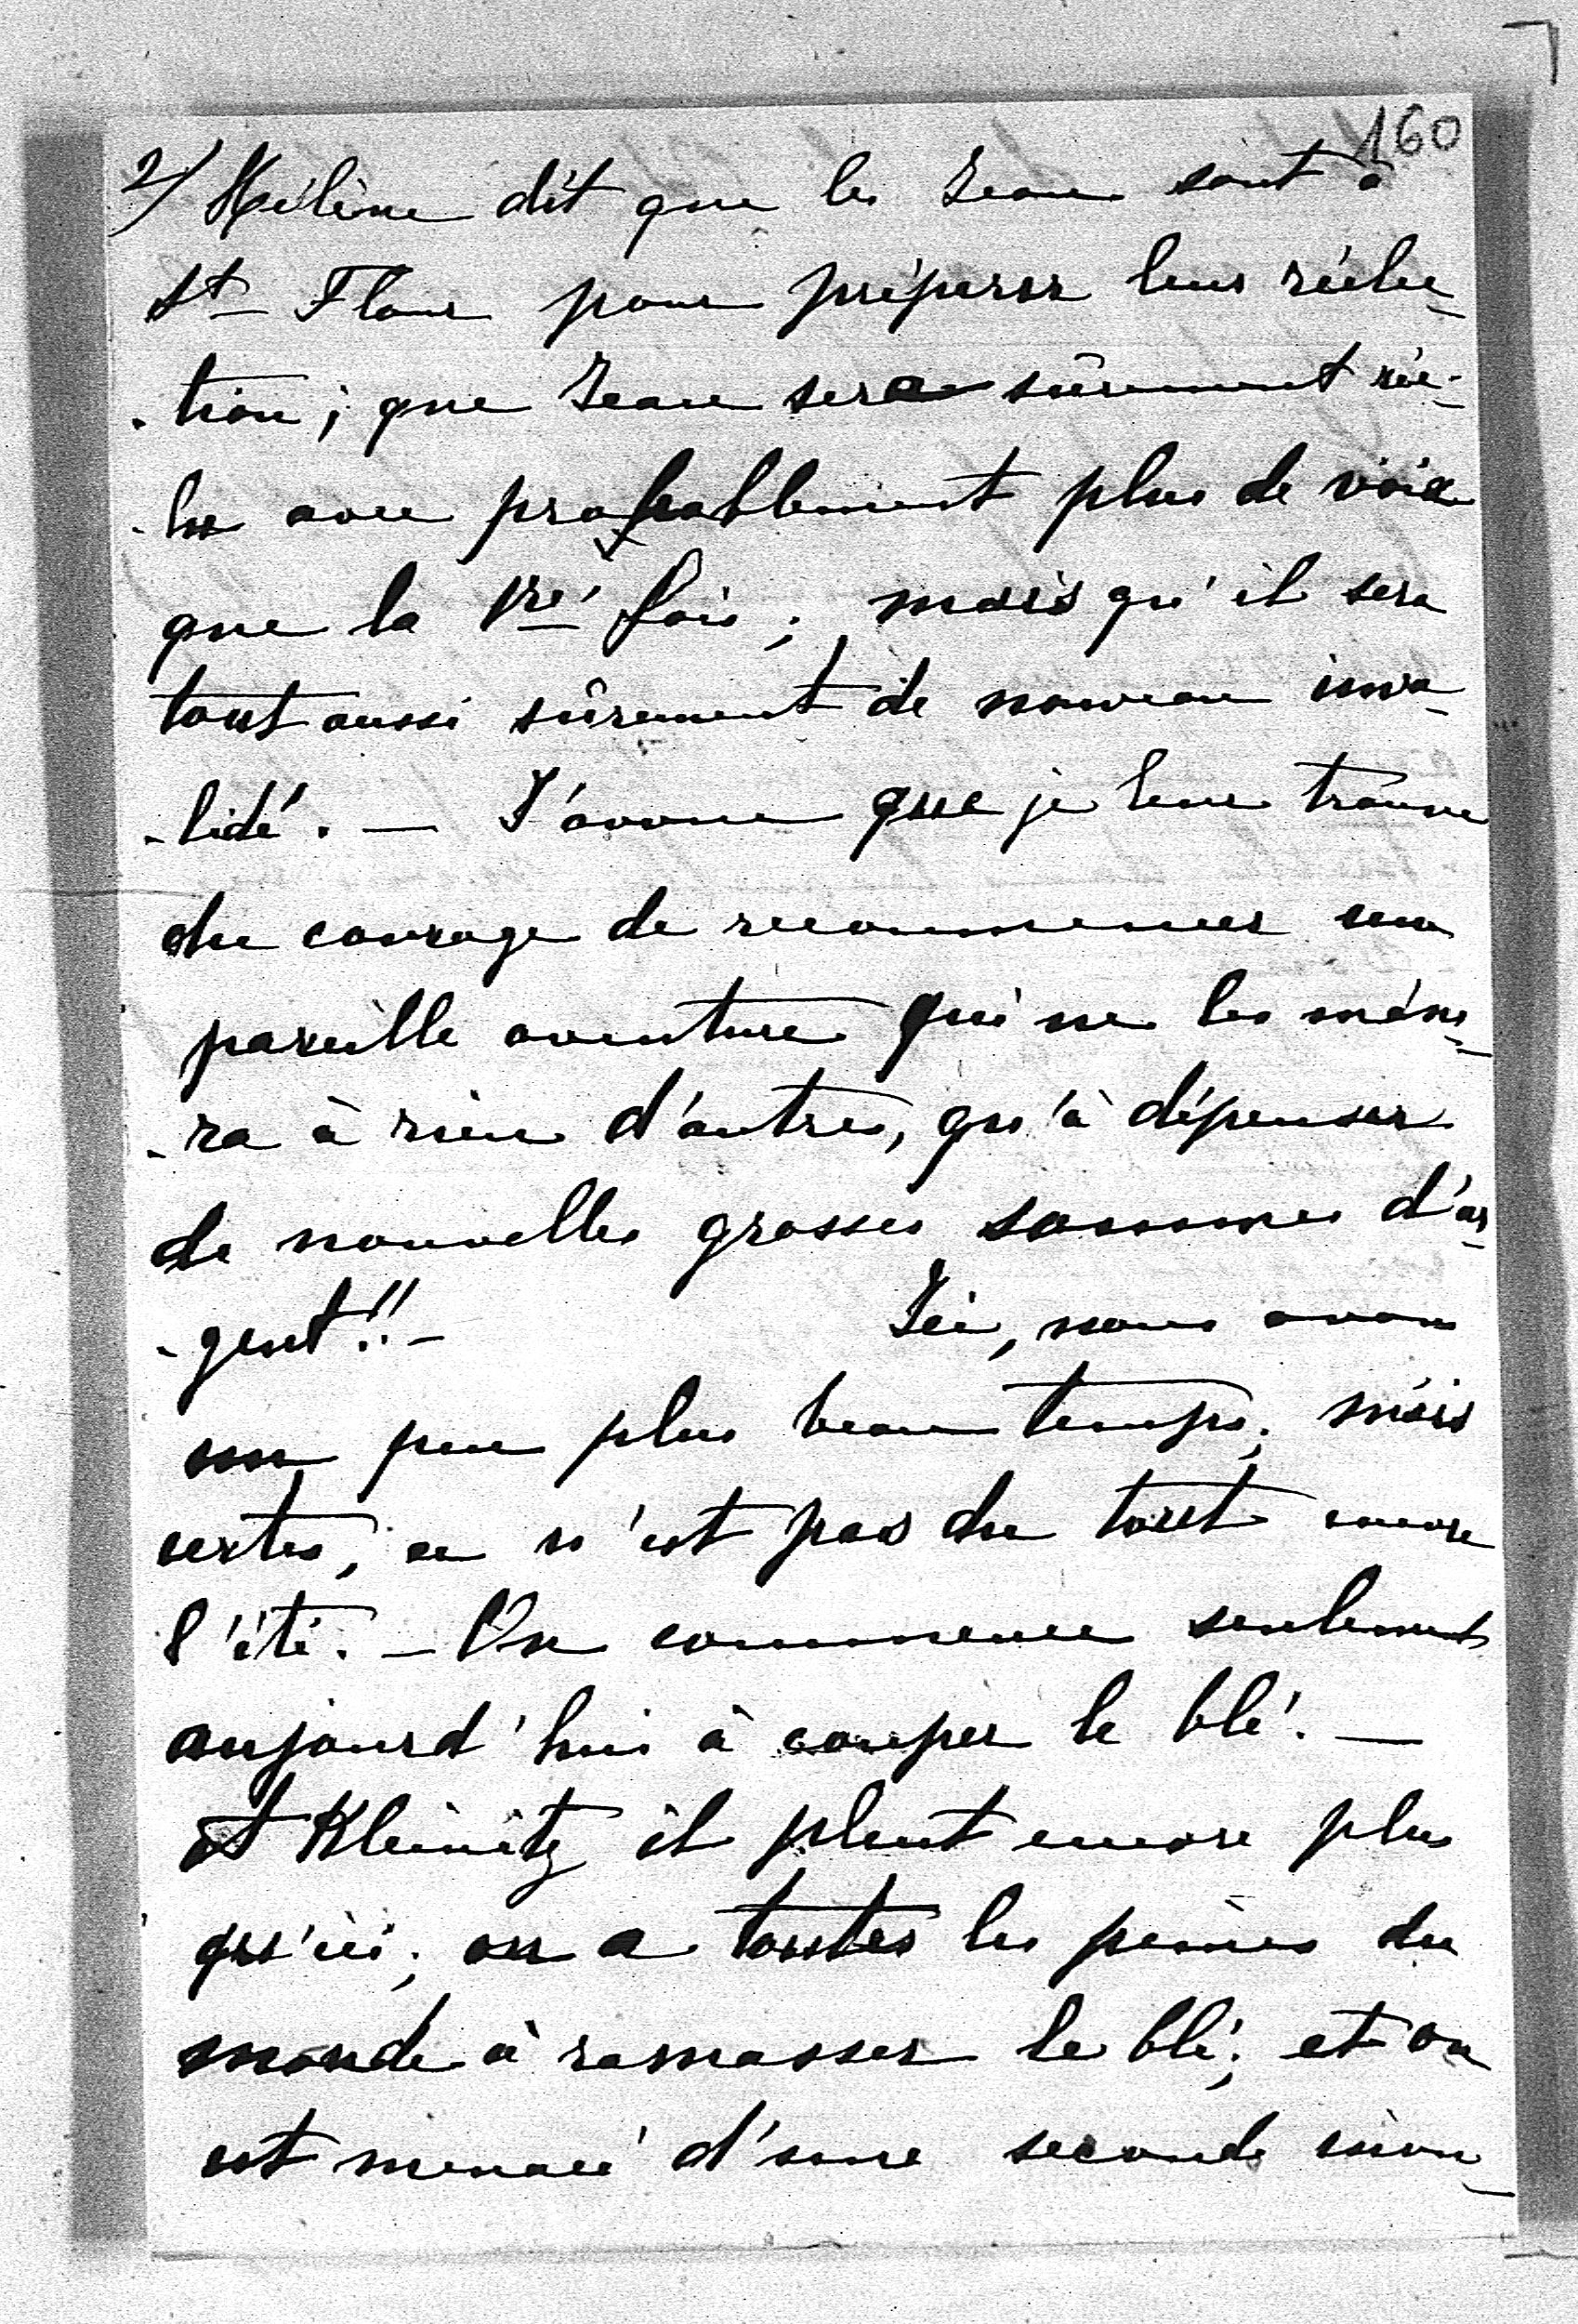 160
2/ Hélène dit que les Jean sont à
St Flour pour préparer leur réélec-
-tion; que Jean sera sûrement réé-
-lu avec probablement plus de voix
que la 1re fois; mais qu'il sera
tout aussi sûrement de nouveau inva-
-lidé. — J'avoue que je leur trouve
du courage de recommencer une
pareille aventure qui ne les mène-
-ra à rien d'autres, qu'à dépenser
de nouvelles grosses sommes d'ar-
-gent!! — Ici, nous avons
un peu plus beau temps; mais
certes, ce n'est pas du tout encore
l'été. — On commence seulement
aujourd'hui à couper le blé. —
A Kleinitz il pleut encore plus
qu'ici; on a toutes les peines du
monde à ramasser le blé; et on
est menacé d'une seconde inon-